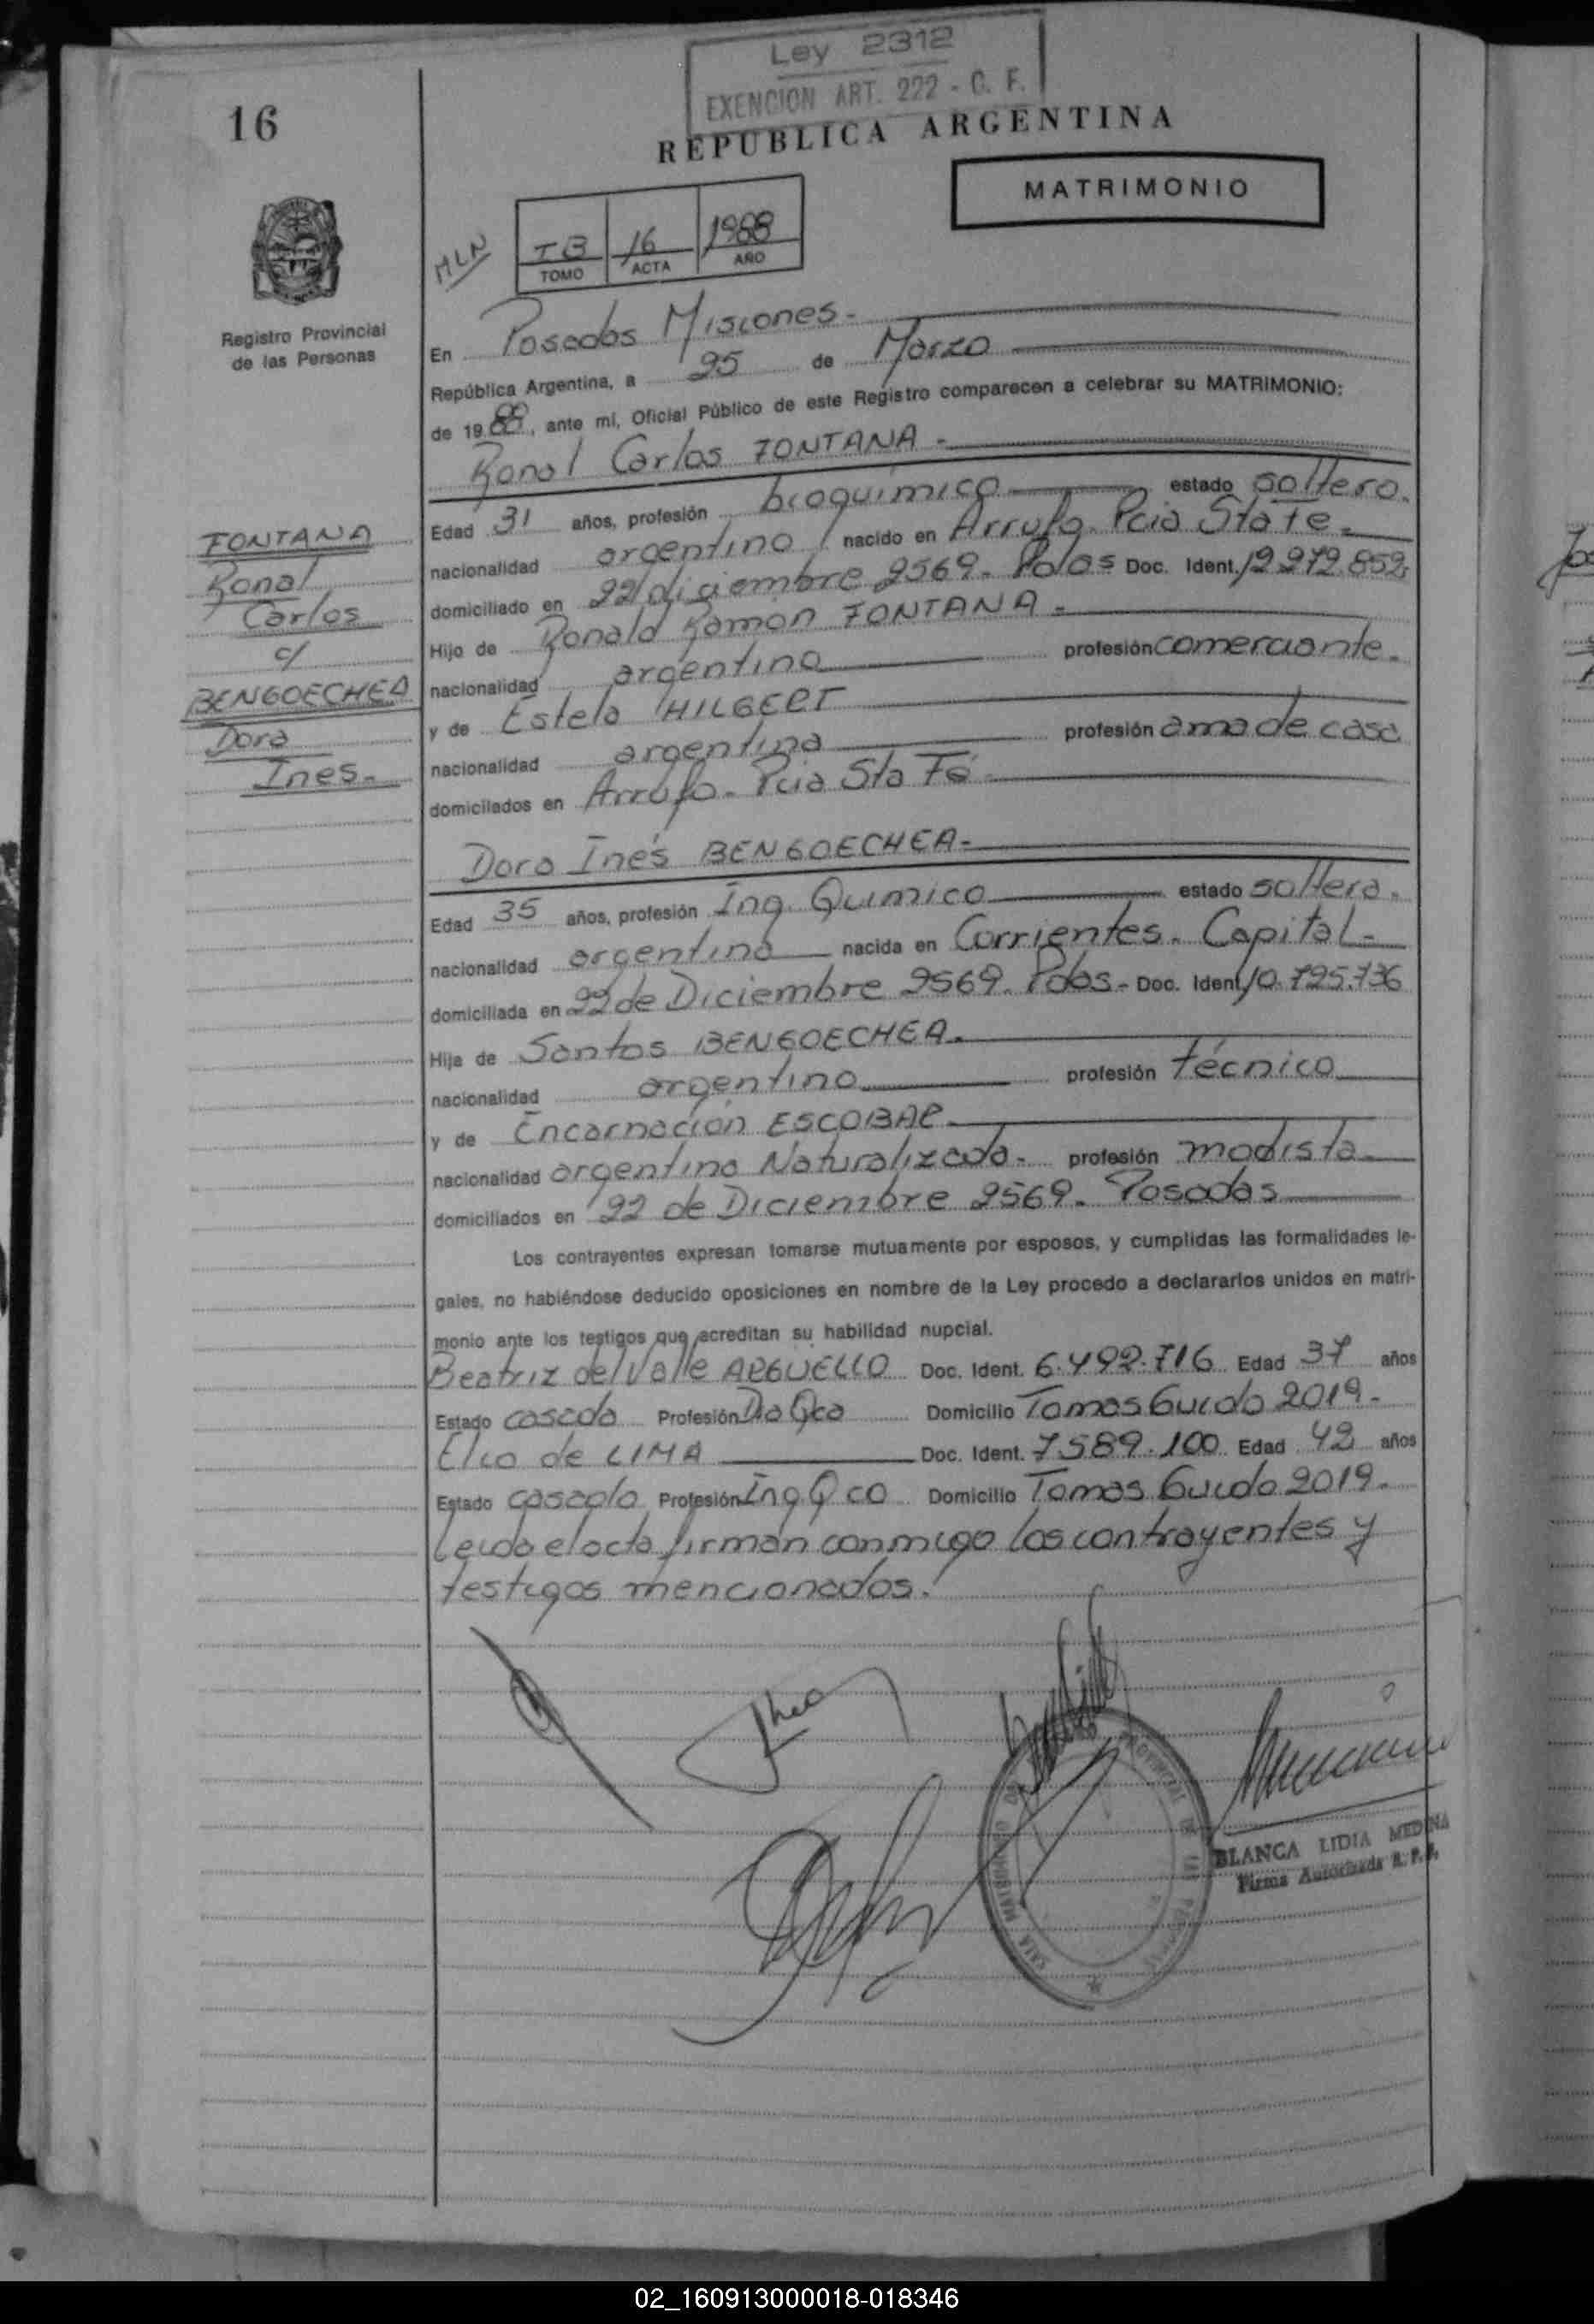 Ley 2312
EXENCION ART. 222 - C. F.
16
REPUBLICA ARGENTINA
MATRIMONIO
MLN
TB 16 1988
TOMO ACTA AÑO
Registro Provincial
de las Personas
En Posadas Misiones-
República Argentina, a 25 de Marzo
de 1988, ante mi, Oficial Público de este Registro comparecen a celebrar su MATRIMONIO:
Ronal Carlos FONTANA -
Edad 31 años, profesión bioquimico estado soltero.
nacionalidad argentino nacido en Arrufo. Pcia Sta Fe-
domiciliado en 22 diciembre 2569- Pdas Doc. Ident. 12.272.852
Hijo de Ronald Ramon FONTANA -
nacionalidad argentina profesión comerciante.
y de Estela HILGERT
nacionalidad argentina profesión ama de casa
domicilados en Arrufo- Pcia Sta Fé
FONTANA
Ronal
Carlos
c/
BENGOECHEA
Dora
Ines-
Dora Inés BENGOECHEA-
Edad 35 años, profesión Ing. Quimico estado soltera.
nacionalidad argentina nacida en Corrientes. Capital-
domiciliada en 22 de Diciembre 2569. Pdas- Doc. Ident. 10.725.736
Hija de Santos BENGOECHEA.
nacionalidad argentino profesión técnico
y de Encarnación ESCOBAR
nacionalidad argentina Naturalizada- profesión modista-
domiciliados en 22 de Diciembre 2569. Posadas
Los contrayentes expresan tomarse mutuamente por esposos, y cumplidas las formalidades le-
gales, no habiéndose deducido oposiciones en nombre de la Ley procedo a declararlos unidos en matri-
monio ante los testigos que acreditan su habilidad nupcial.
Beatriz del Valle ARGUELLO Doc. Ident. 6.492.716 Edad 37 años
Estado casada Profesión Domicilio Tomas Guido 2019-
Elio de LIMA Doc. Ident. 7589.100 Edad 42 años
Estado casado Profesión Ing Qco Domicilio Tomas Guido 2019.
Leida el acta firman conmigo los contrayentes y
testigos mencionados.
BLANCA LIDIA MEDINA
Firma Autorizada R. P. P.
02_160913000018-018346